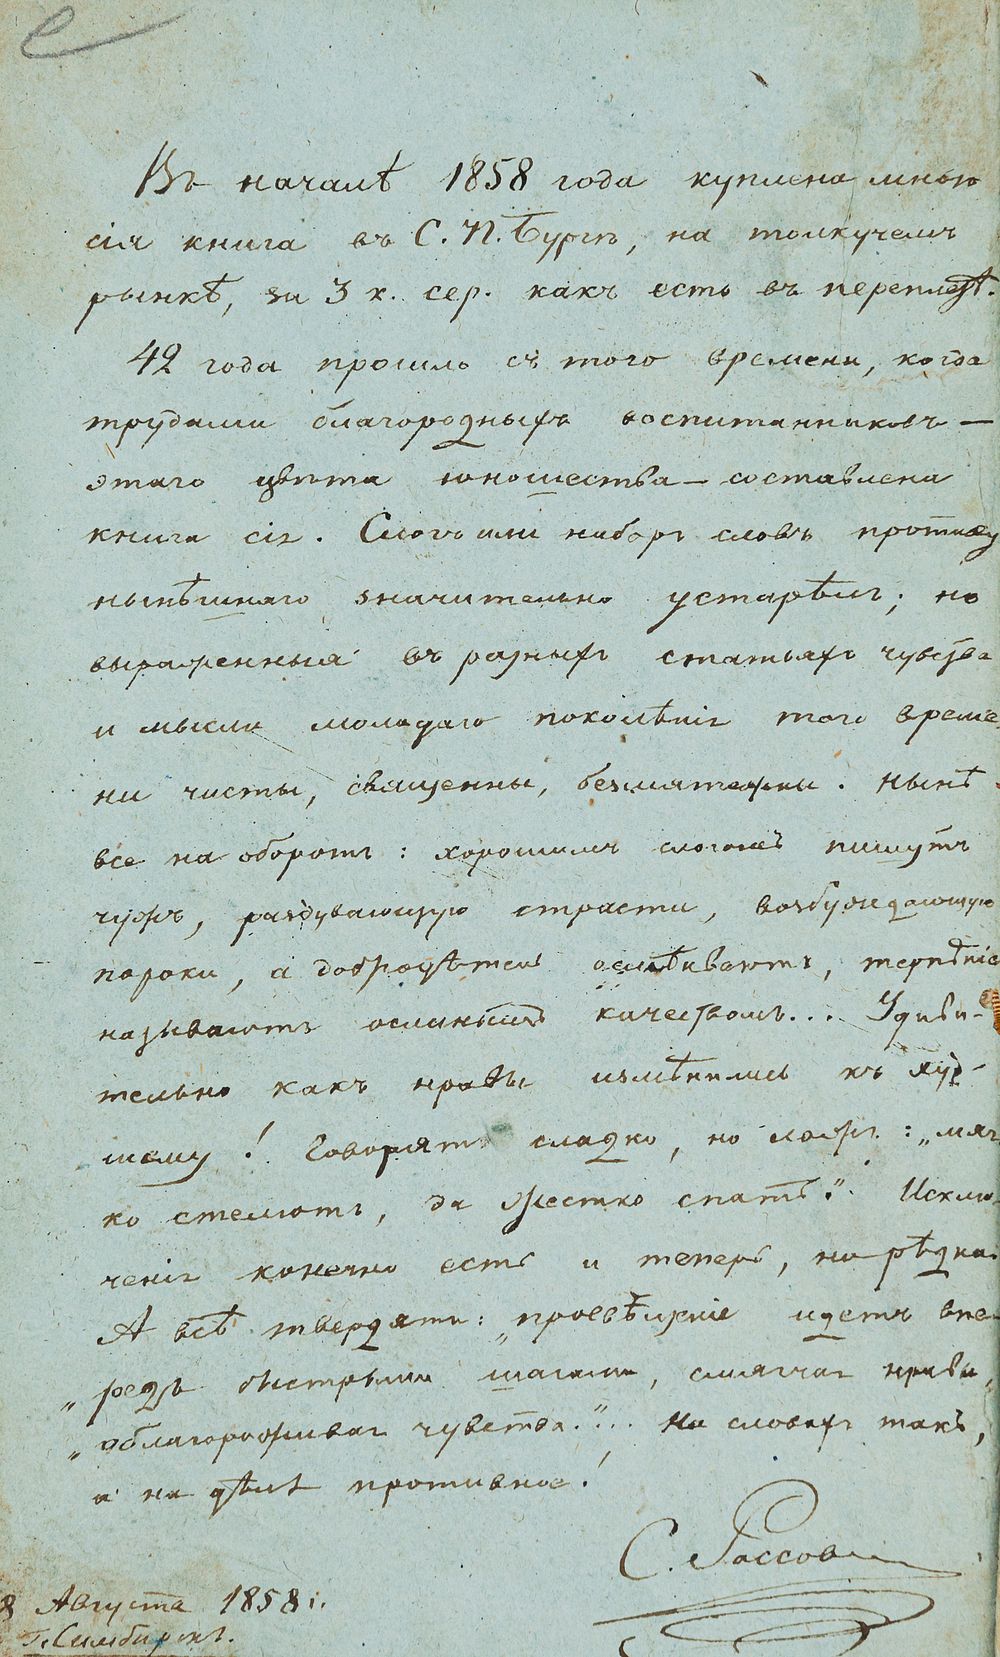 Въ началѣ 1858 года куплена мною
сія книга въ С. П. Бургѣ, на толкучемъ
рынкѣ, за 3 к. сер. какъ есть въ переплетѣ.
42 года прошло съ того времени, когда
трудами благородныхъ воспитанниковъ —
этаго цвѣта юношества — составлена
книга сія. Слогъ или наборъ словъ противу
нынѣшняго значительно устарѣлъ; но
выраженныя въ разныхъ статьяхъ чувства
и мысли молодаго поколѣнія того време
ни чисты, священны, безмятежны. Нынѣ
все на оборотъ: хорошимъ слогомъ пишутъ
чушь, раздувающую страсти, возбуждающую
пороки, а добродѣтель осмѣиваютъ, терпѣніе
называютъ ослинымъ качествомъ... Удиви-
тельно какъ нравы измѣнились къ худ-
шему! Говорятъ сладко, но ложь: „мяг
ко стелютъ, да жестко спать". Исклю
ченія конечно есть и теперь, но рѣдки.
А всѣ твердятъ: „просвѣщеніе идетъ впе-
„редъ быстрыми шагами, смягчая нравы,
„облагороживая чувства."... На словахъ такъ,
а на дѣлѣ противное!
С. Рассов
8 Августа 1858 г.
г. Симбирскъ.